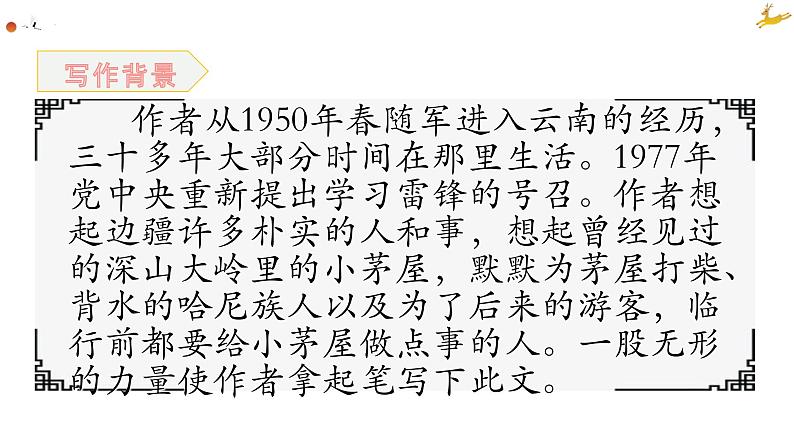 写作背景
作者从1950年春随军进入云南的经历，
三十多年大部分时间在那里生活。1977年
党中央重新提出学习雷锋的号召。作者想
起边疆许多朴实的人和事，想起曾经见过
的深山大岭里的小茅屋，默默为茅屋打柴、
背水的哈尼族人以及为了后来的游客，临
行前都要给小茅屋做点事的人。一股无形
的力量使作者拿起笔写下此文。